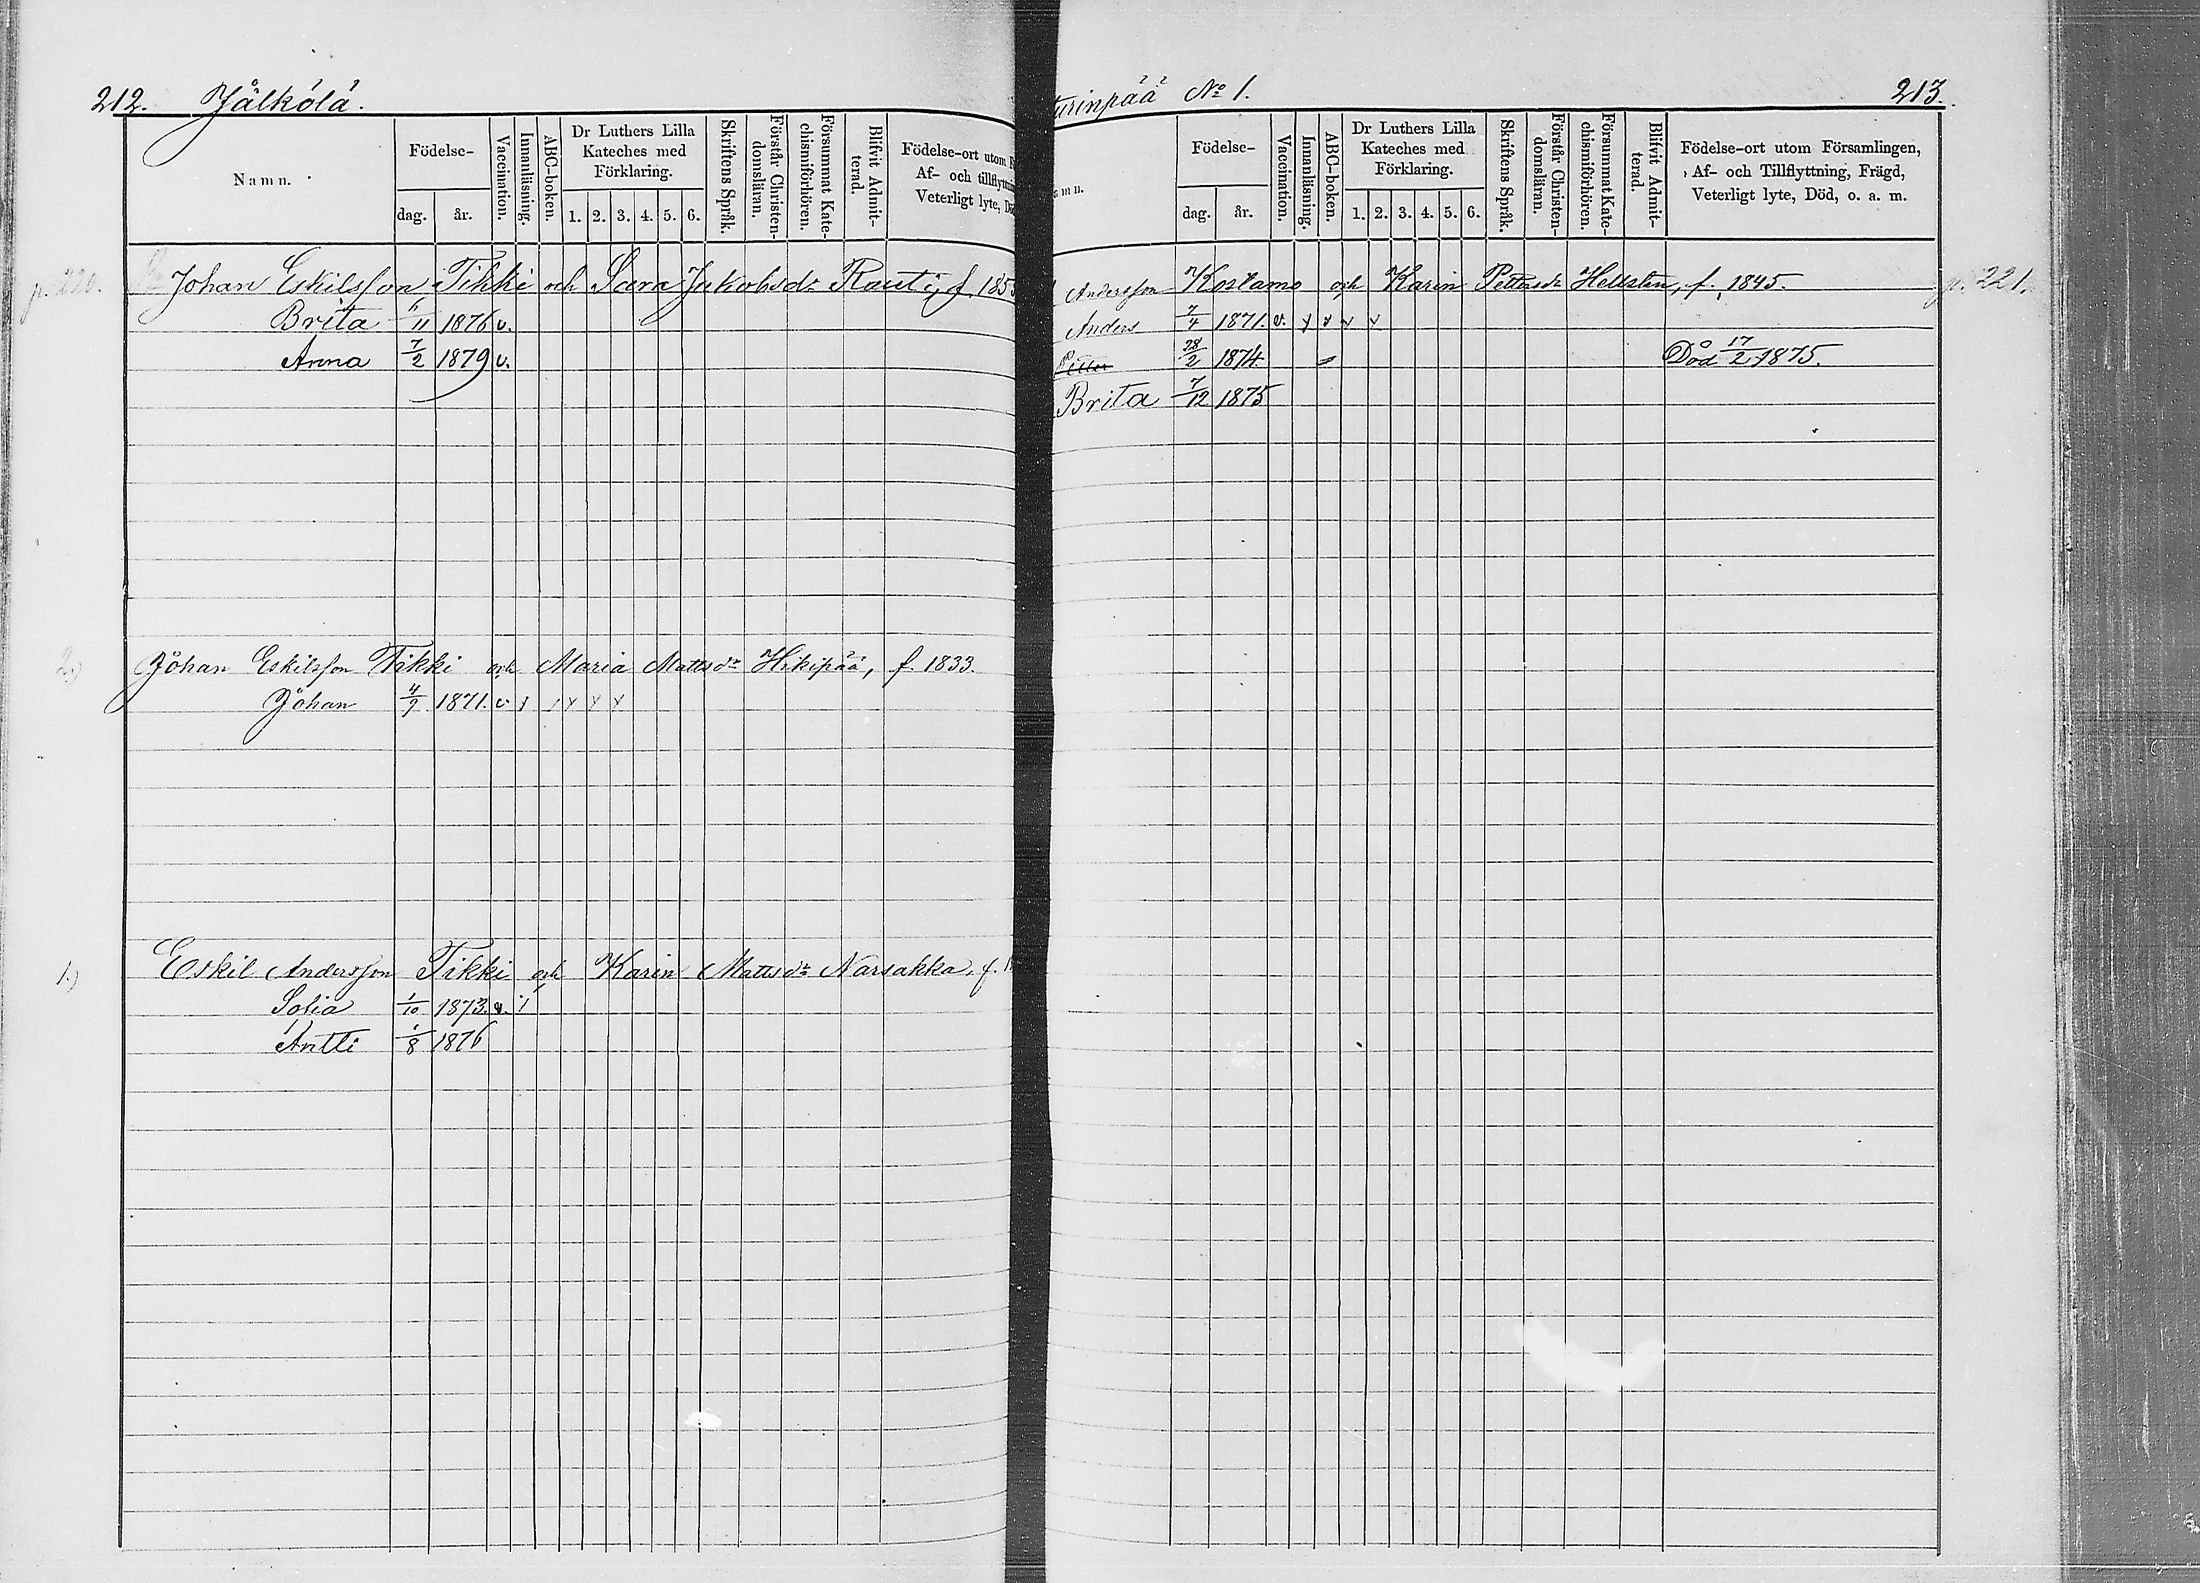 212. Jälkölä.
Namn.
Födelse-
dag. år.
Vaccination.
Innanläsning.
ABC-boken.
Dr Luthers Lilla Kateches med Förklaring.
1. 2. 3. 4. 5. 6.
Skriftens Språk.
Förstår Christen-domsläran.
Försummat Kate-chismiförhören.
Blifvit Admit-terad.
Födelse-ort utom
Af- och tillflyttni
Veterligt lyte, Dö
p. 220. Johan Eskilsson Tikki och Sara Jakobsdr Rauti, f. 185
Brita 11 1876 v.
Anna 7/2 1879 v.
2.) Johan Eskilsson Tikki och Maria Mattsdr Hikipää, f. 1833.
Johan 4/9 1871. v x / x x x
1.) Eskil Andersson Tikki och Karin Mattsdr Narsakka, f. 1
Sofia 1/10 1873. v.
Antti 1/8 1876
urinpää No 1. 213.
mn.
Födelse-
dag. år.
Vaccination.
Innanläsning.
ABC-boken.
Dr Luthers Lilla Kateches med Förklaring.
1. 2. 3. 4. 5. 6.
Skriftens Språk.
Förstår Christen-domsläran.
Försummat Kate-chismiförhören.
Blifvit Admit-terad.
Födelse-ort utom Församlingen,
Af- och Tillflyttning, Frägd,
Veterligt lyte, Död, o. a. m.
Andersson Kostamo och Karin Pettersdr Hellsten, f. 1845. p. 221.
Anders 7/4 1871. v. x x x x
Petter 28/2 1874. Död 17/2 1875.
Brita 7/12 1875